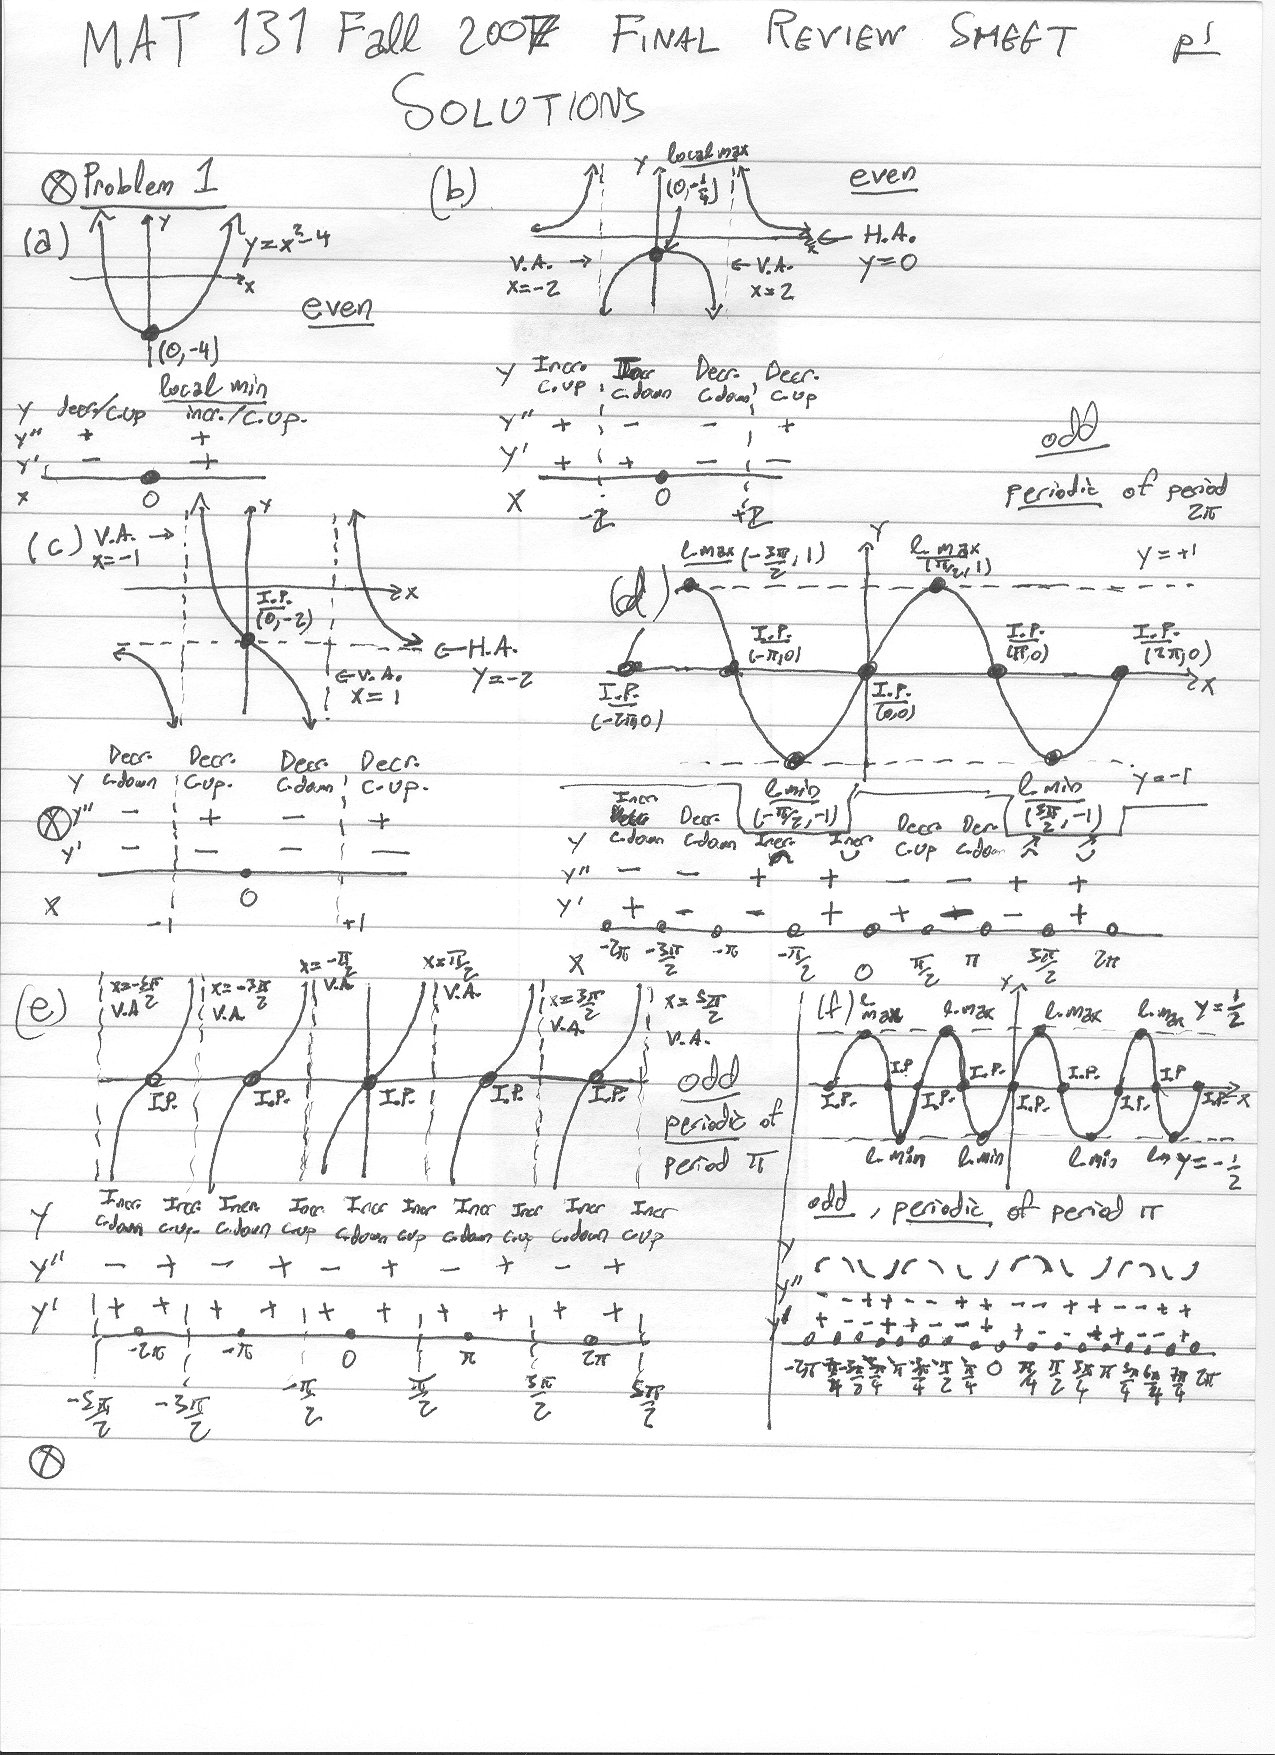 MAT 131 Fall 2007 FINAL REVIEW SHEET p1
SOLUTIONS
Problem 1
(a)
y
y=x²-4
x
even
(0,-4)
local min
y decr/c.up incr./c.up.
y" + +
y' - +
x 0
(b)
y
local max
(0,-1/4)
even
x
H.A.
y=0
V.A.
x=-2
V.A.
x=2
y Incr. c.up Incr c.down Decr. c.down Decr. c.up
y" + - - +
y' + + - -
x -2 0 +2
(c)
V.A.
x=-1
y
x
I.P.
(0,-2)
H.A.
y=-2
V.A.
x=1
y Decr. c.down Decr. c.up. Decr. c.down Decr. c.up.
y" - + - +
y' - - - -
x -1 0 +1
odd
periodic of period
2π
(d)
l.max (-3π/2, 1)
y
l.max
(π/2, 1)
y=+1
I.P.
(-π,0)
I.P.
(π,0)
I.P.
(2π,0)
x
I.P.
(-2π,0)
I.P.
(0,0)
y=-1
l.min
(-π/2, -1)
l.min
(3π/2, -1)
y Incr c.down Decr. c.down Incr. Incr. Decr. c.up Decr. c.down
y" - - + + - - + +
y' + - - + + - +
x -2π -3π/2 -π -π/2 0 π/2 π 3π/2 2π
(e)
x=-5π/2
V.A
x=-3π/2
V.A.
x=-π/2
V.A.
x=π/2
V.A.
x=3π/2
V.A.
x=5π/2
V.A.
I.P. I.P. I.P. I.P. I.P.
odd
periodic of
period π
y Incr. c.down Incr. c.up. Incr. c.down Incr. c.up Incr c.down Incr c.up Incr c.down Incr c.up Incr c.down Incr c.up
y" - + - + - + - + - +
y' + + + + + + + + + +
-2π -π 0 π 2π
-5π/2 -3π/2 -π/2 π/2 3π/2 5π/2
(f)
l.max l.max l.max l.max y=1/2
y
I.P. I.P. I.P. I.P.
I.P. I.P. I.P. I.P. I.P. x
l.min l.min l.min y=-1/2
odd, periodic of period π
y
y" - - + + - - + + - - + + - - + +
y'
-2π 0 π/4 π/2 π 7π/4 2π